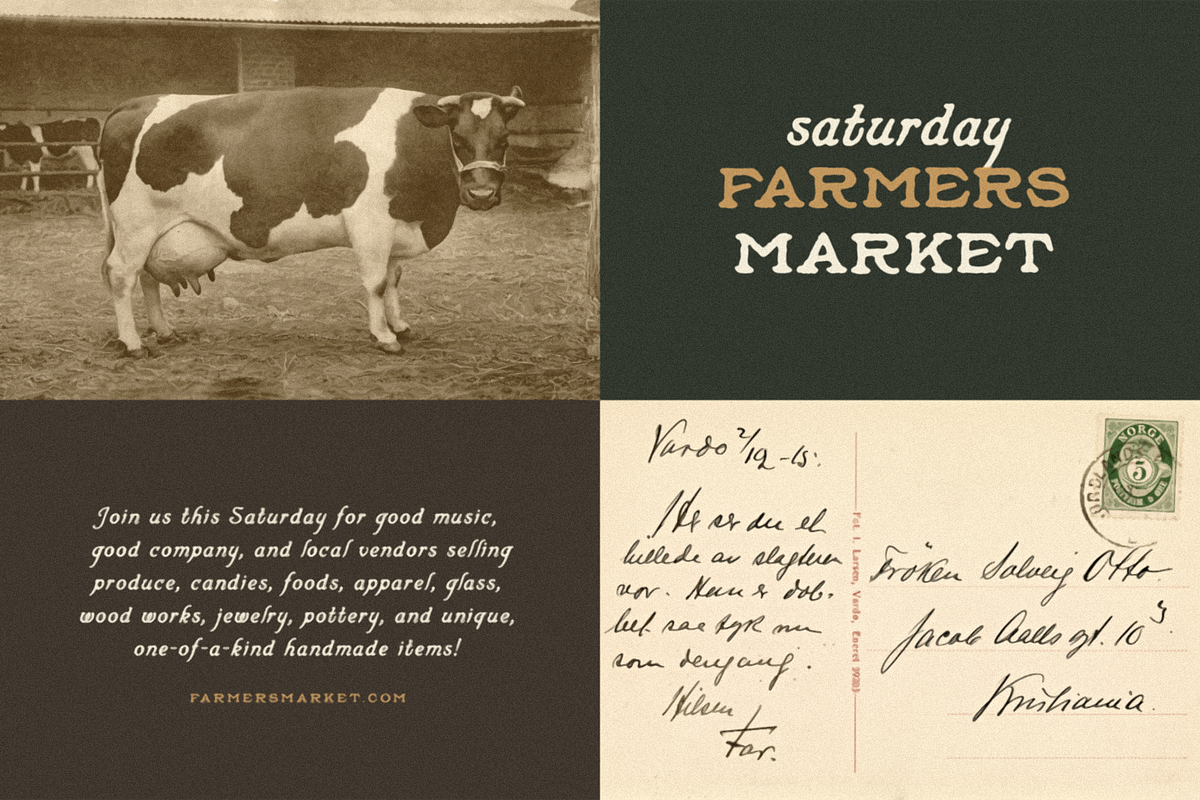 saturday
FARMERS
MARKET
Join us this Saturday for good music,
good company, and local vendors selling
produce, candies, foods, apparel, glass,
wood works, jewelry, pottery, and unique,
one-of-a-kind handmade items!
FARMERSMARKET.COM
Vardo 2/12 -15.
Her ser du et
billede av slagteren
vor. Han er dob-
belt saa tyk nu
som dengang.
Hilsen
Far.
Fot. I. Larsen, Vardo, Eneret
NORGE
5
Fröken Solveig Otto
Jacob Aalls gt. 10
Kristiania.